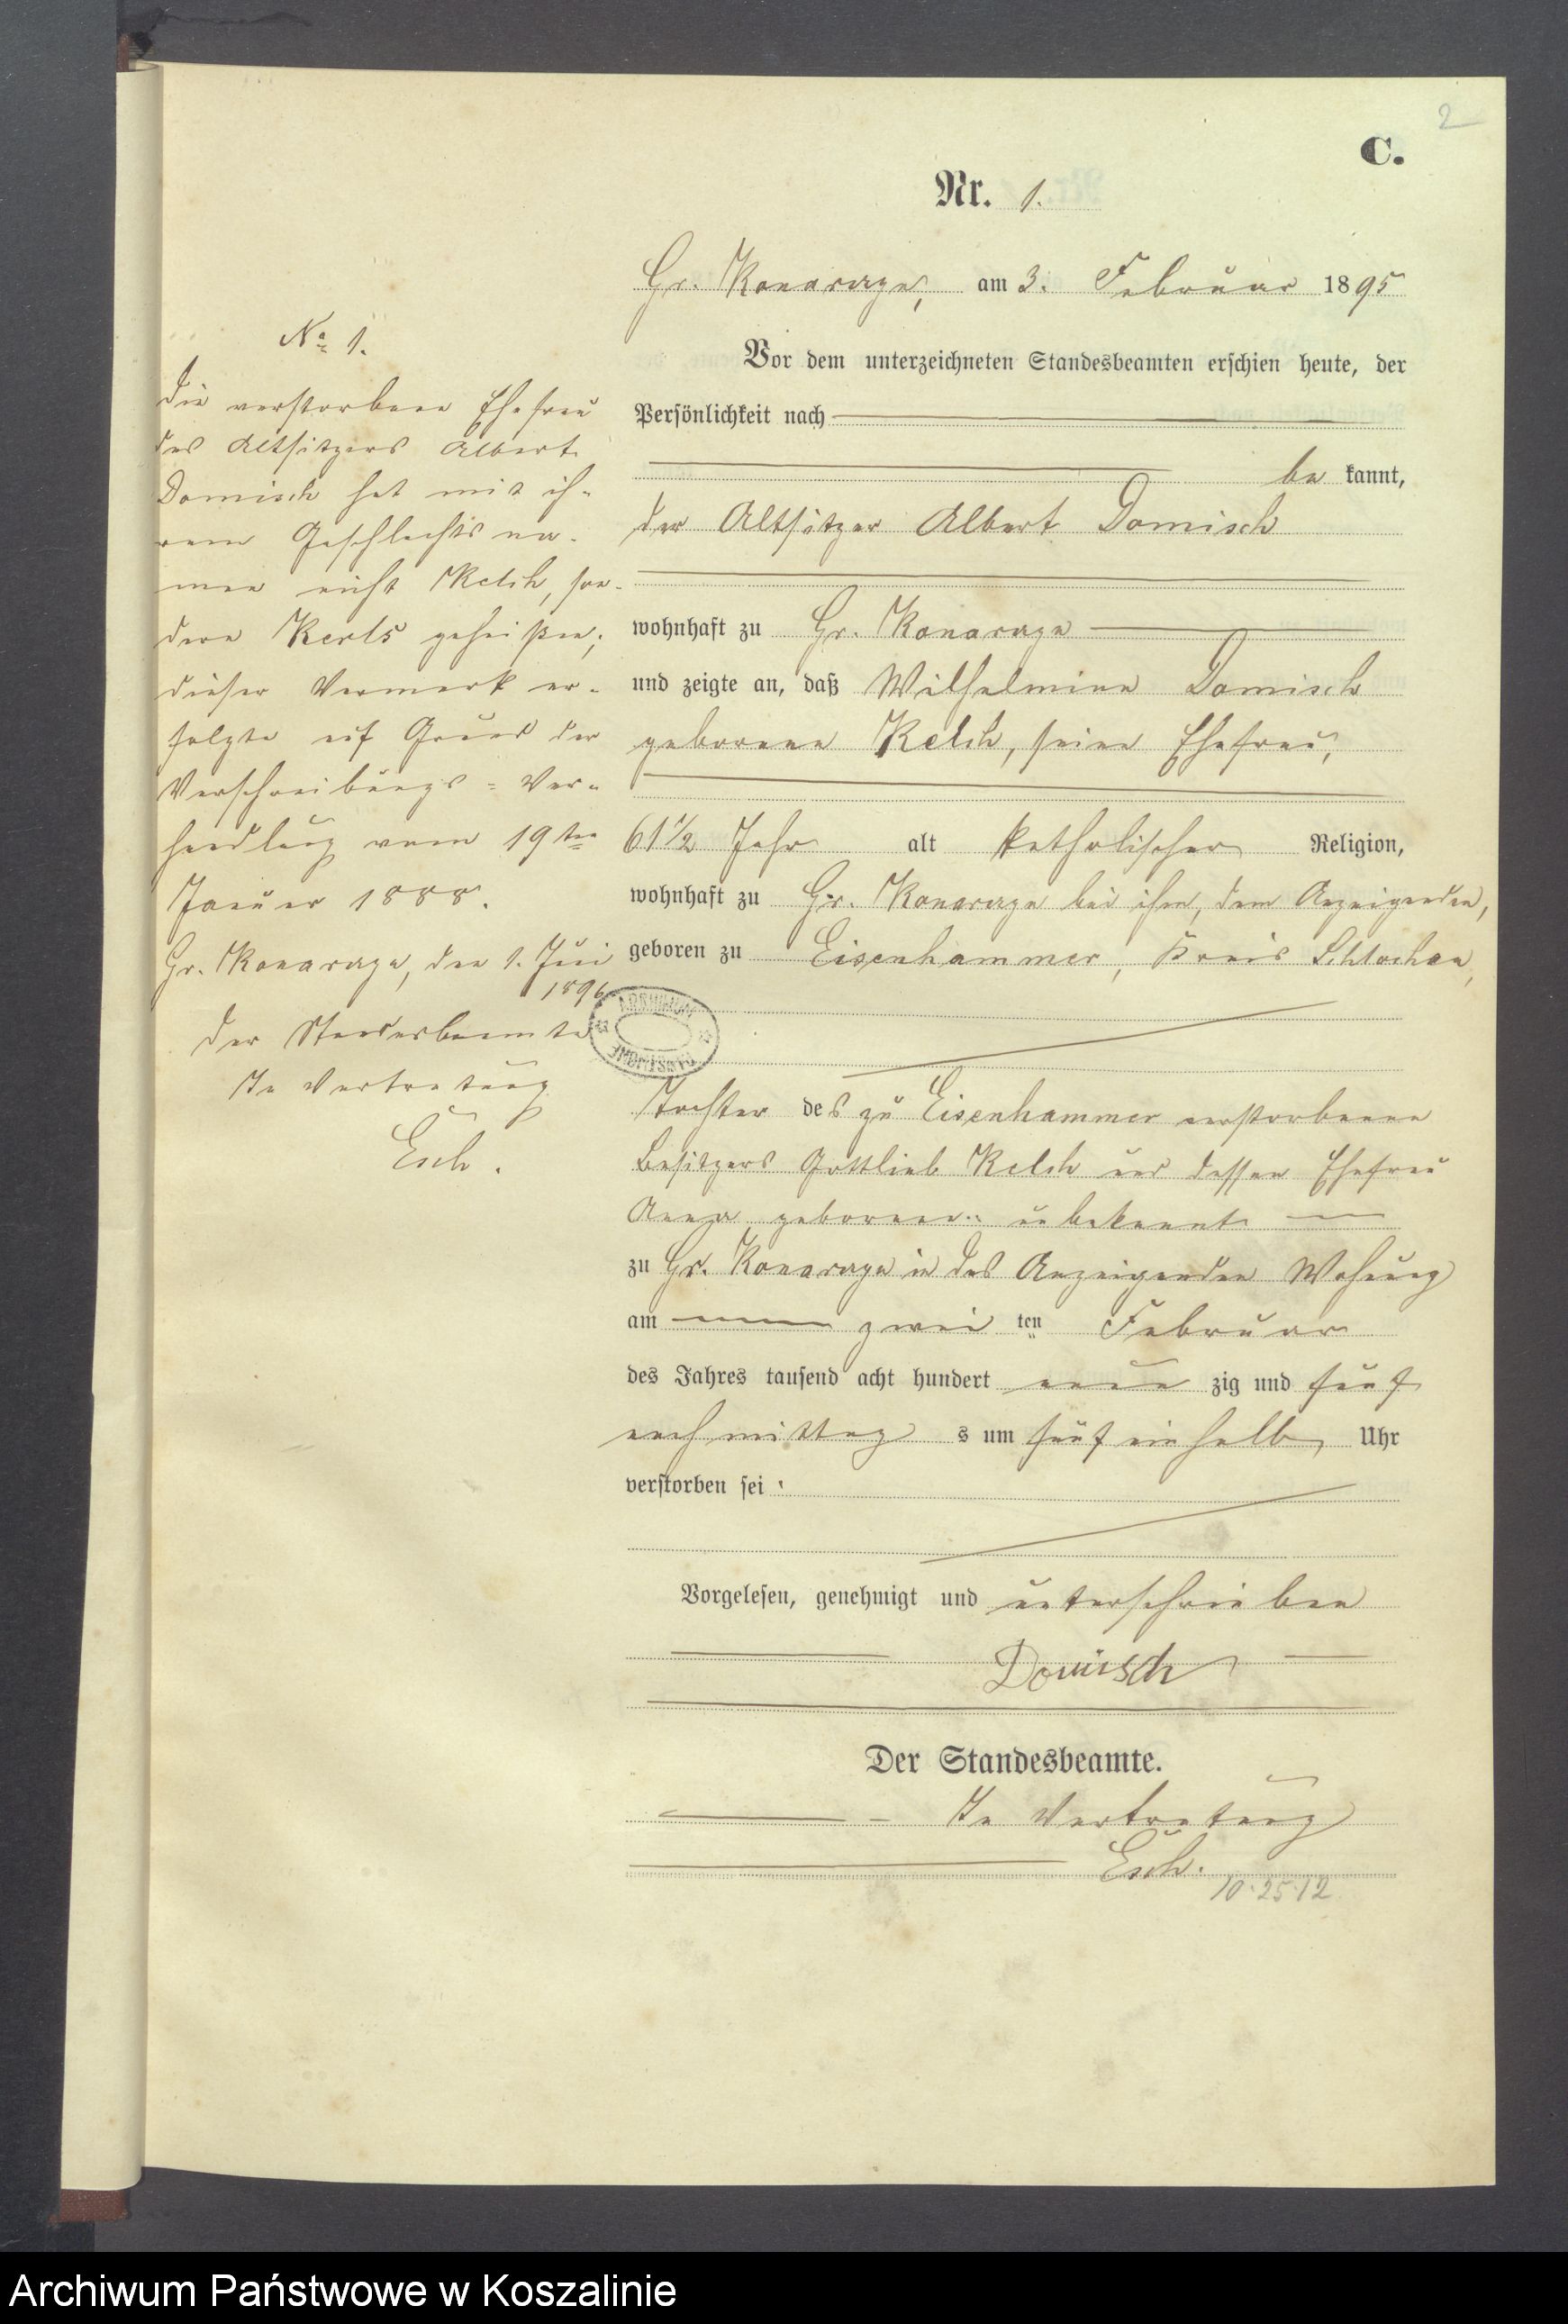 2
C.
Nr. 1.
Gr. Konarzyn, am 3. Februar 1895
Vor dem unterzeichneten Standesbeamten erschien heute, der
Persönlichkeit nach
be kannt,
der Altsitzer Albert Domisch
wohnhaft zu Gr. Konarzyn
und zeigte an, daß Wilhelmine Domisch
geborene Kelch, seine Ehefrau,
61 1/2 Jahr alt katholischer Religion,
wohnhaft zu Gr. Konarzyn bei ihm, dem Anzeigenden,
geboren zu Eisenhammer, Kreis Schlochau,
Tochter des zu Eisenhammer verstorbenen
Besitzers Gottlieb Kelch und dessen Ehefrau
Anna geborene unbekannt
zu Gr. Konarzyn in des Anzeigenden Wohnung
am zwei ten Februar
des Jahres tausend acht hundert neun zig und fünf
nachmittag s um fünf einhalb Uhr
verstorben sei
Vorgelesen, genehmigt und unterschrieben
Domisch
Der Standesbeamte.
In Vertretung
Esch.
10.25.12
No 1.
Die verstorbene Ehefrau
des Altsitzers Albert
Domisch hat mit ih-
rem Geschlechtsna-
men nicht Kelch, son-
dern Kerls geheißen;
dieser Vermerk er-
folgte auf Grund der
Verschreibungs-Ver-
handlung vom 19ten
Januar 1888.
Gr. Konarzyn, den 1. Juni
1896
Der Standesbeamte
In Vertretung
Esch.
ARCHIWUM
Archiwum Państwowe w Koszalinie